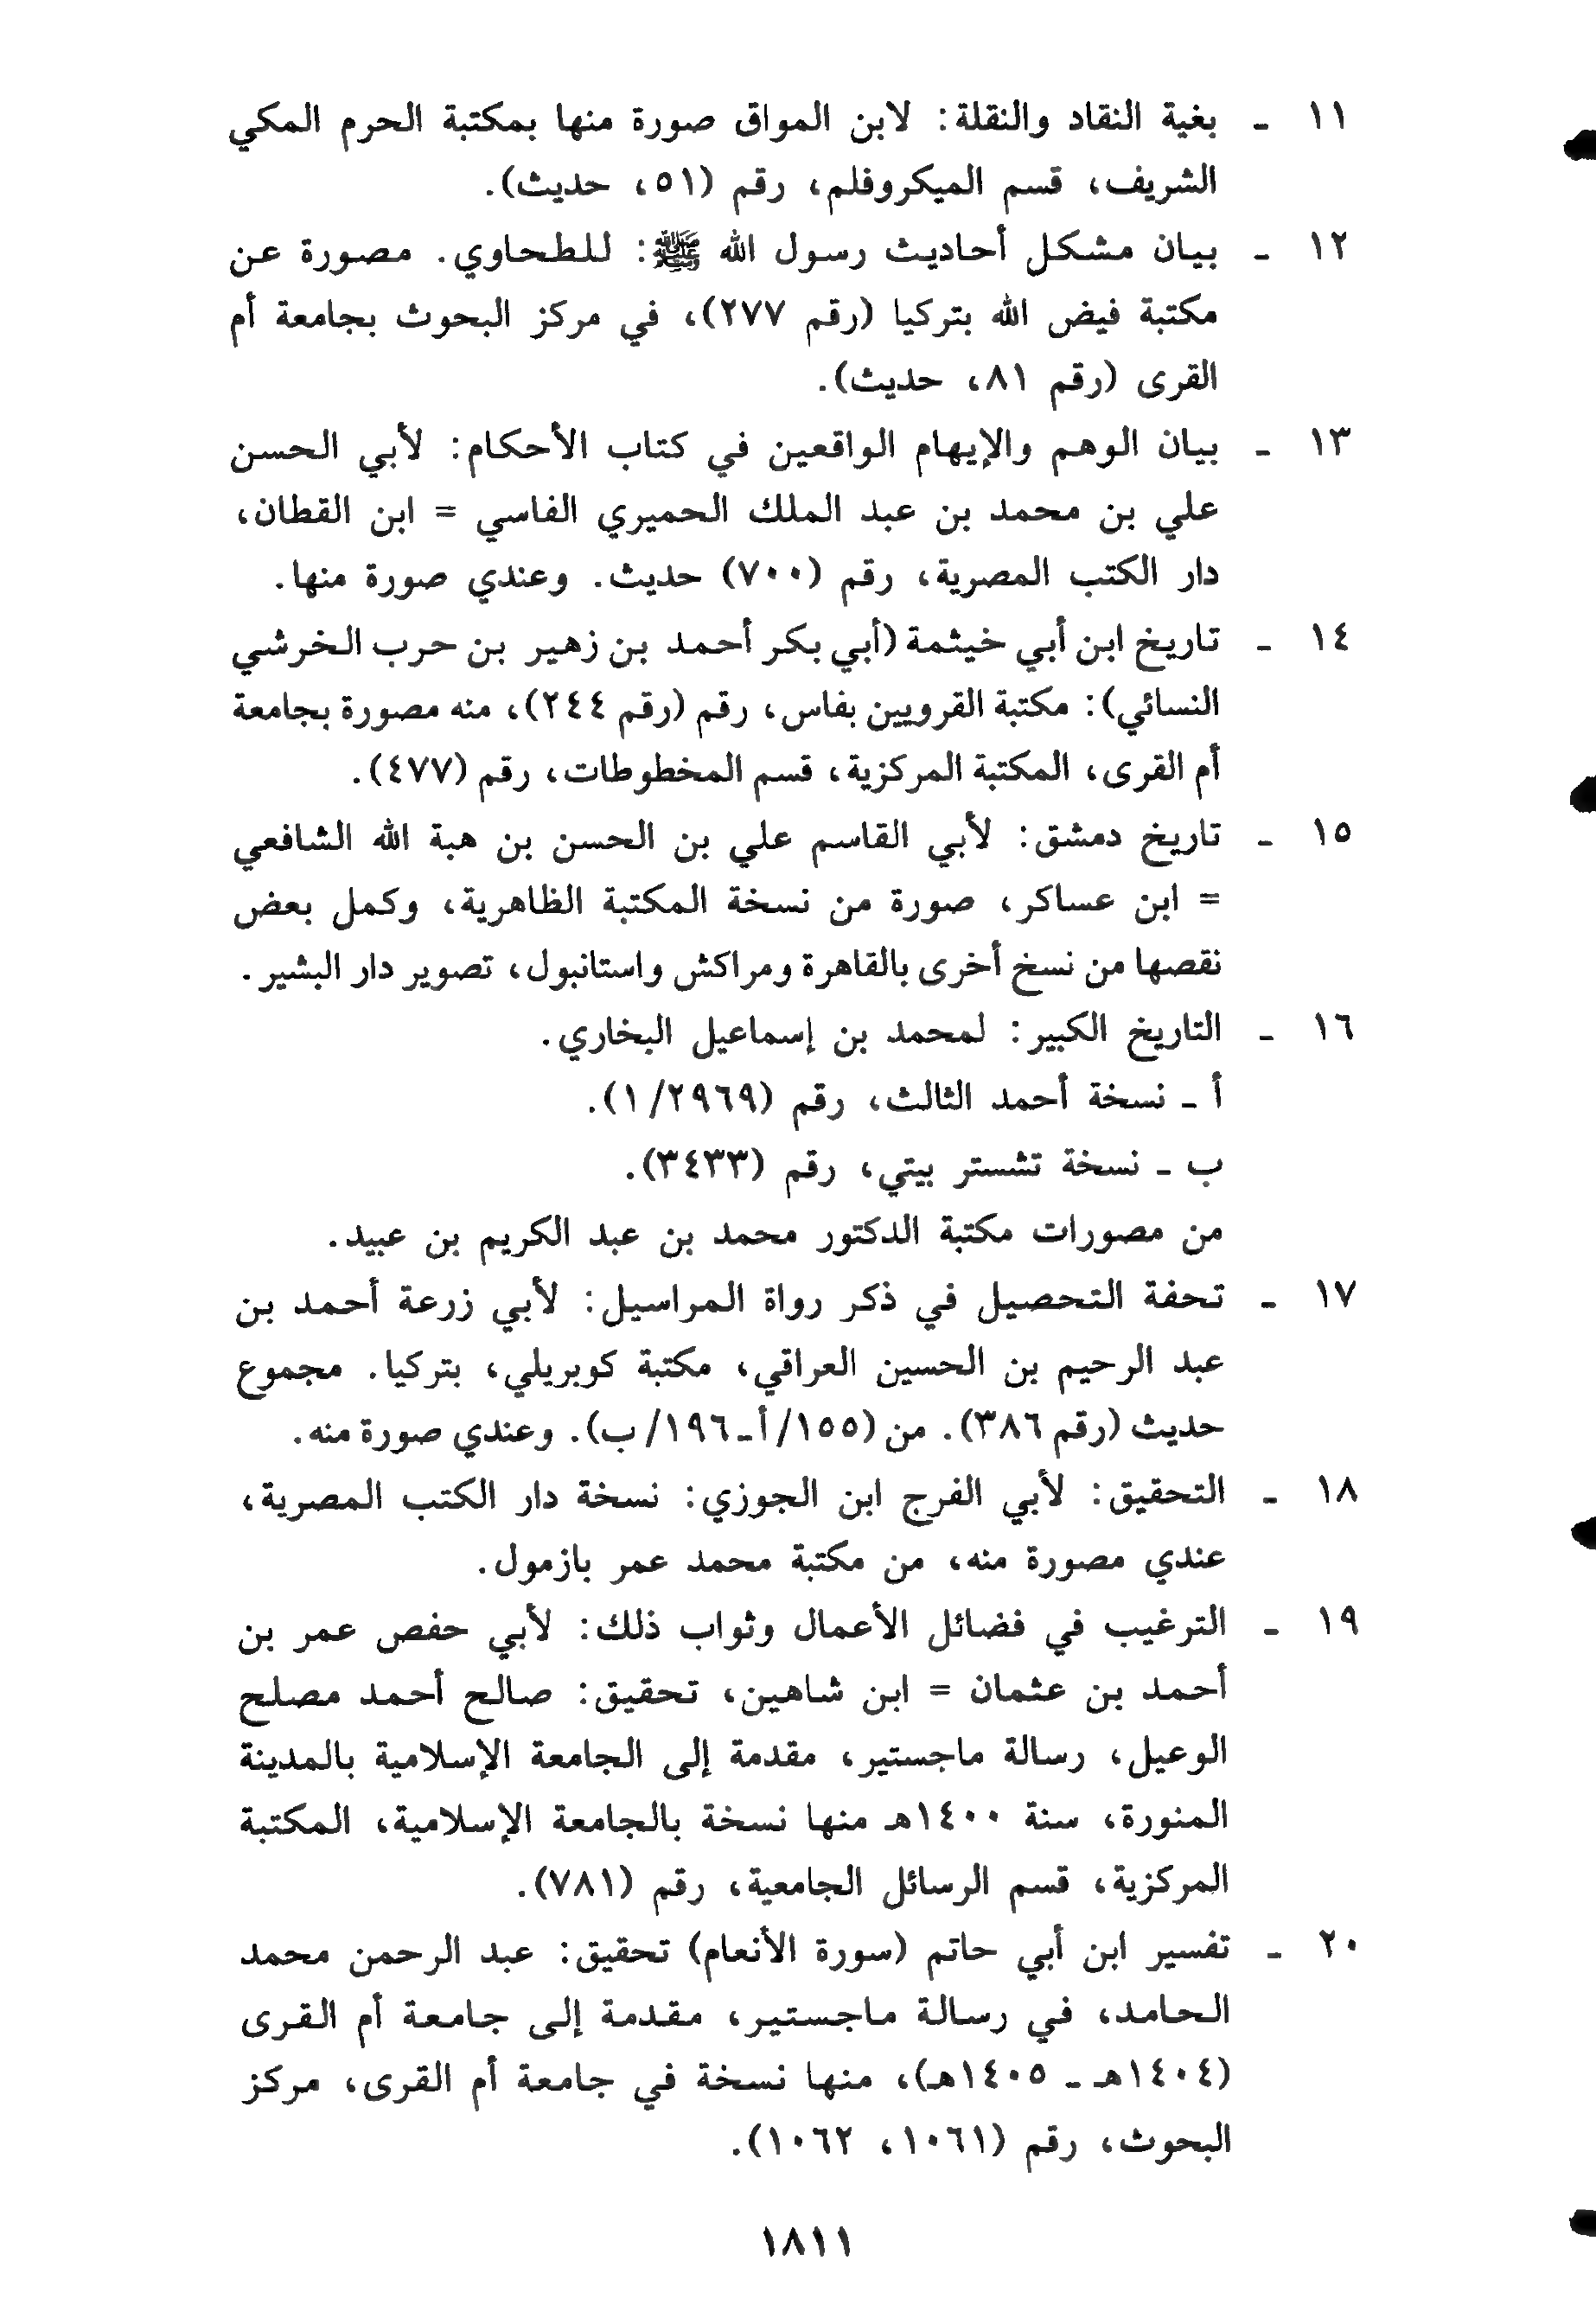 ١١ - بغية النقاد والنقلة: لابن المواق صورة منها بمكتبة الحرم المكي
الشريف، قسم الميكروفلم، رقم (٥١، حديث).
١٢ - بيان مشكل أحاديث رسول الله ﷺ: للطحاوي. مصورة عن
مكتبة فيض الله بتركيا (رقم ٢٧٧)، في مركز البحوث بجامعة أم
القرى (رقم ٨١، حديث).
١٣ - بيان الوهم والإيهام الواقعين في كتاب الأحكام: لأبي الحسن
علي بن محمد بن عبد الملك الحميري الفاسي = ابن القطان،
دار الكتب المصرية، رقم (٧٠٠) حديث. وعندي صورة منها.
١٤ - تاريخ ابن أبي خيثمة (أبي بكر أحمد بن زهير بن حرب الخرشي
النسائي): مكتبة القرويين بفاس، رقم (رقم ٢٤٤)، منه مصورة بجامعة
أم القرى، المكتبة المركزية، قسم المخطوطات، رقم (٤٧٧).
١٥ - تاريخ دمشق: لأبي القاسم علي بن الحسن بن هبة الله الشافعي
= ابن عساكر، صورة من نسخة المكتبة الظاهرية، وكمل بعض
نقصها من نسخ أخرى بالقاهرة ومراكش واستانبول، تصوير دار البشير.
١٦ - التاريخ الكبير: لمحمد بن إسماعيل البخاري.
أ - نسخة أحمد الثالث، رقم (١/٢٩٦٩).
ب - نسخة تشستر بيتي، رقم (٣٤٣٣).
من مصورات مكتبة الدكتور محمد بن عبد الكريم بن عبيد.
١٧ - تحفة التحصيل في ذكر رواة المراسيل: لأبي زرعة أحمد بن
عبد الرحيم بن الحسين العراقي، مكتبة كوبريلي، بتركيا. مجموع
حديث (رقم ٣٨٦). من (١٥٥/أ - ١٩٦/ب). وعندي صورة منه.
١٨ - التحقيق: لأبي الفرج ابن الجوزي: نسخة دار الكتب المصرية،
عندي مصورة منه، من مكتبة محمد عمر بازمول.
١٩ - الترغيب في فضائل الأعمال وثواب ذلك: لأبي حفص عمر بن
أحمد بن عثمان = ابن شاهين، تحقيق: صالح أحمد مصلح
الوعيل، رسالة ماجستير، مقدمة إلى الجامعة الإسلامية بالمدينة
المنورة، سنة ١٤٠٠هـ منها نسخة بالجامعة الإسلامية، المكتبة
المركزية، قسم الرسائل الجامعية، رقم (٧٨١).
٢٠ - تفسير ابن أبي حاتم (سورة الأنعام) تحقيق: عبد الرحمن محمد
الحامد، في رسالة ماجستير، مقدمة إلى جامعة أم القرى
(١٤٠٤هـ - ١٤٠٥هـ)، منها نسخة في جامعة أم القرى، مركز
البحوث، رقم (١٠٦١، ١٠٦٢).
١٨١١